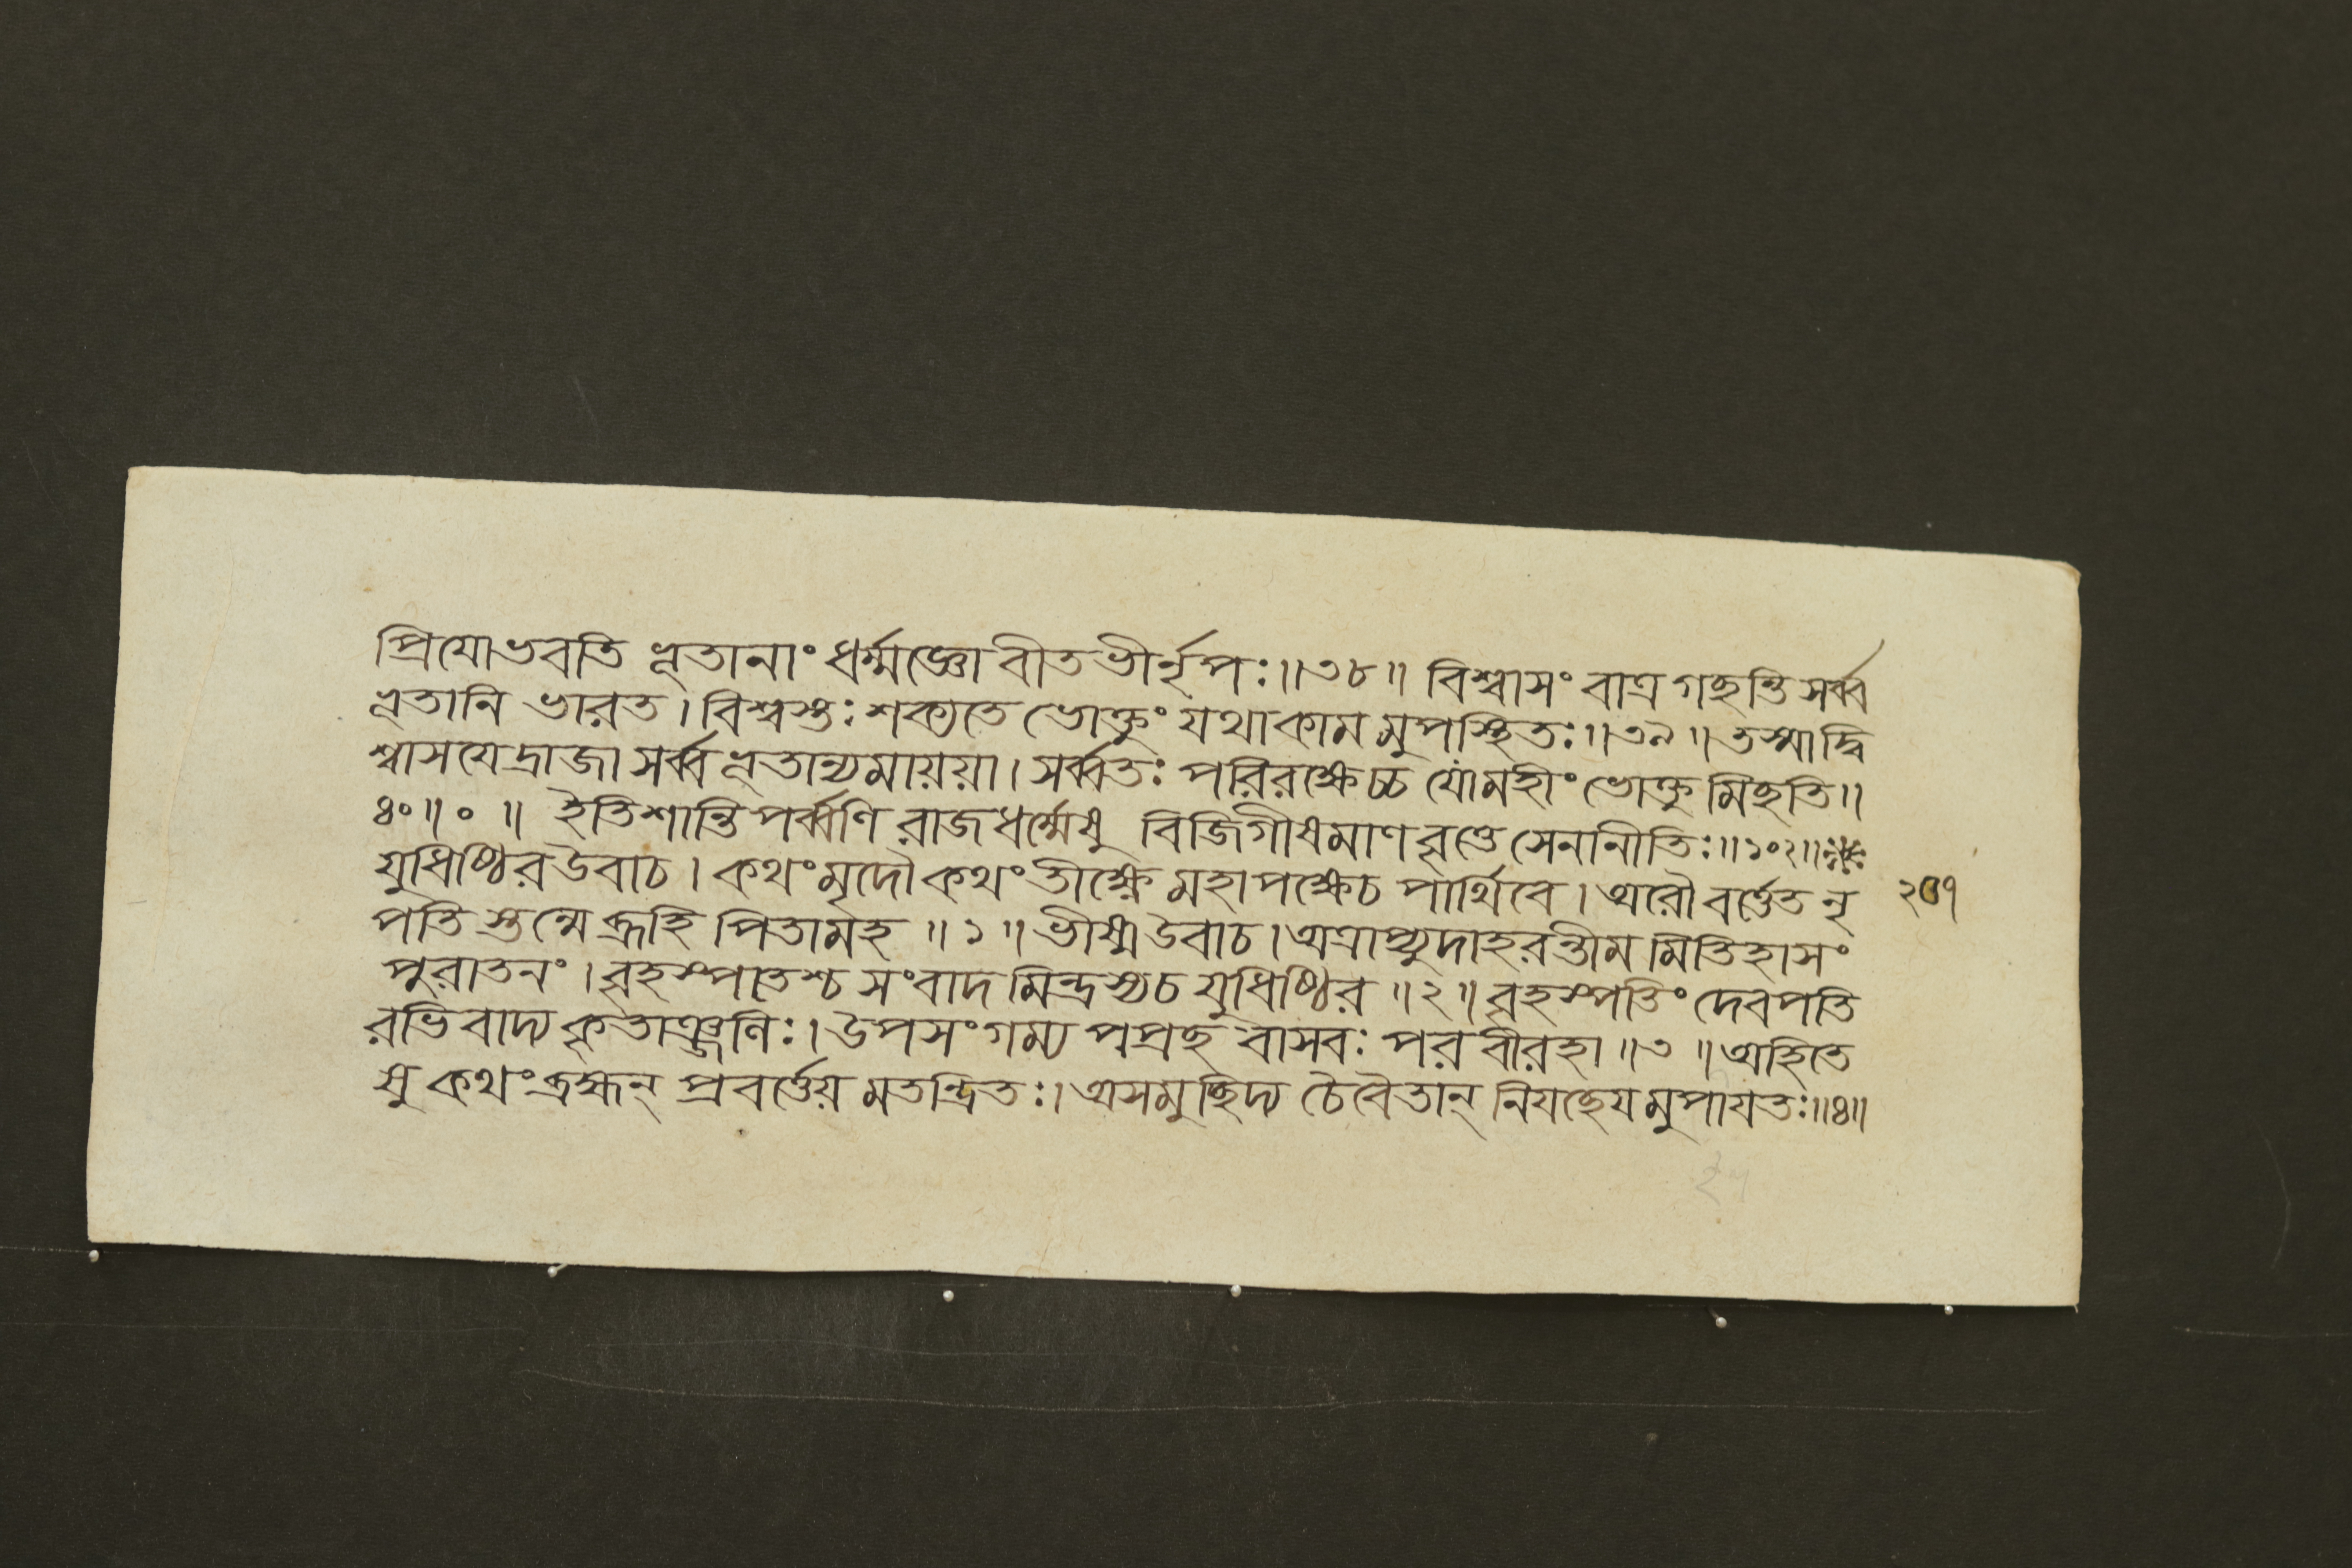 প্রিযোভবতি ভূতানাং ধর্ম্মজ্ঞো বীতভীর্নৃপঃ॥৩৮॥ বিশ্বাসং বাত্র গছন্তি সর্ব্ব
ভূতানি ভারত। বিশ্বস্তঃ শক্যতে ভোক্তুং যথাকামমুপস্থিতঃ॥৩৯॥তস্মাদ্বি
শ্বাসযেদ্রাজা সর্ব্বভূতান্যমাযযা। সর্ব্বতঃ পরিরক্ষেচ্চ যোমহীং ভোক্তুমিছতি॥
৪০॥০॥ ইতিশান্তিপর্ব্বণি রাজধর্ম্মেষু বিজিগীষমাণবৃত্তে সেনানীতিঃ॥১০২॥
যুধিষ্ঠিরউবাচ। কথংমৃদৌকথংতীক্ষ্ণে মহাপক্ষেচ পার্থিবে। অরৌবর্ত্তেতনৃ
পতি স্তন্মেব্রূহি পিতামহ॥১॥ভীষ্মউবাচ।অত্রাপ্যুদাহরন্তীমমিতিহাসং
পুরাতনং। বৃহস্পতেশ্চ সংবাদমিন্দ্রস্যচ যুধিষ্ঠির॥২॥বৃহস্পতিং দেবপতি
রভিবাদ্য কৃতাঞ্জলিঃ। উপসংগম্য পপ্রছ বাসবঃ পরবীরহা॥৩॥অহিতে
ষু কথংব্রহ্মন্ প্রবর্ত্তেয়মতন্দ্রিতঃ। অসমুছিদ্য চৈবৈতান্ নিযছেযমুপাযতঃ॥৪॥